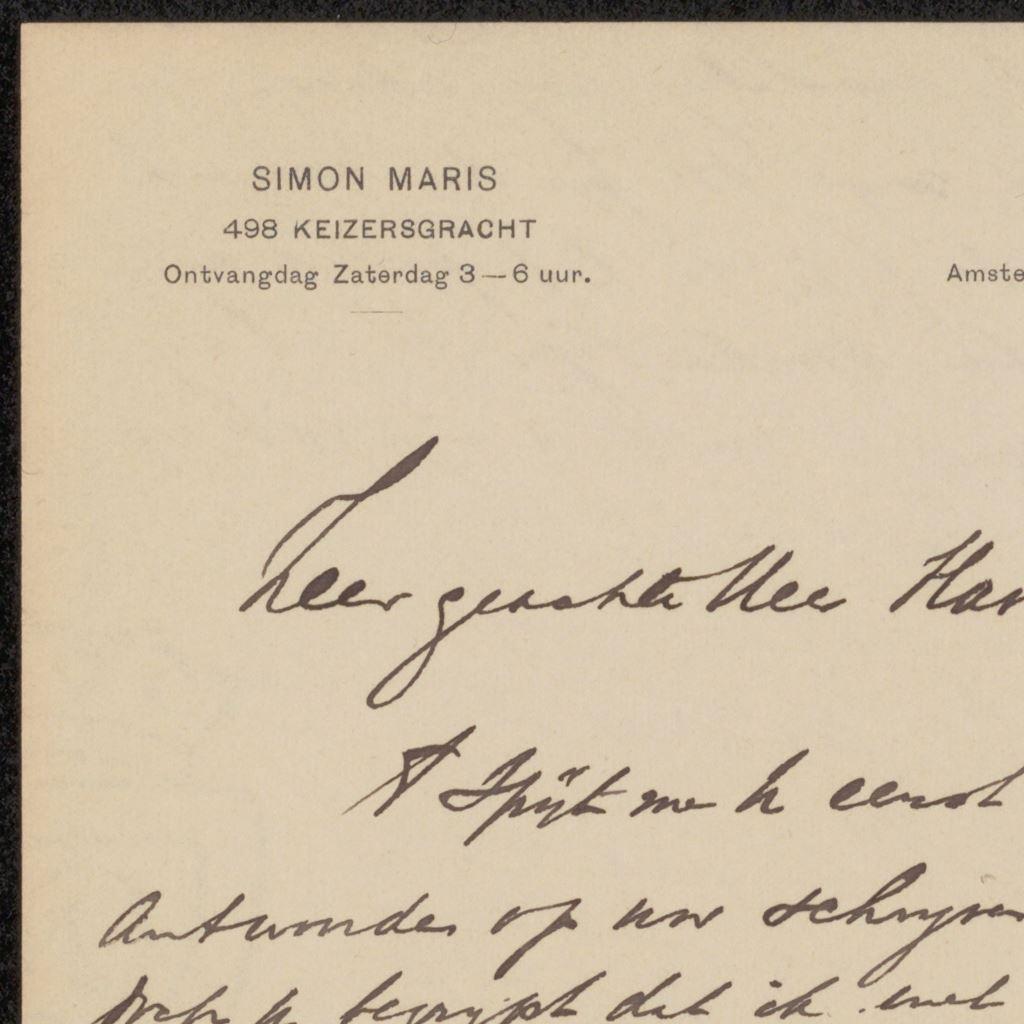 SIMON MARIS
498 KEIZERSGRACHT
Ontvangdag Zaterdag 3—6 uur.
Amste
Zeer geachte Heer Har
't Spijt me U eerst
Antwoorden op uw schrijven
U begrijpt dat ik met